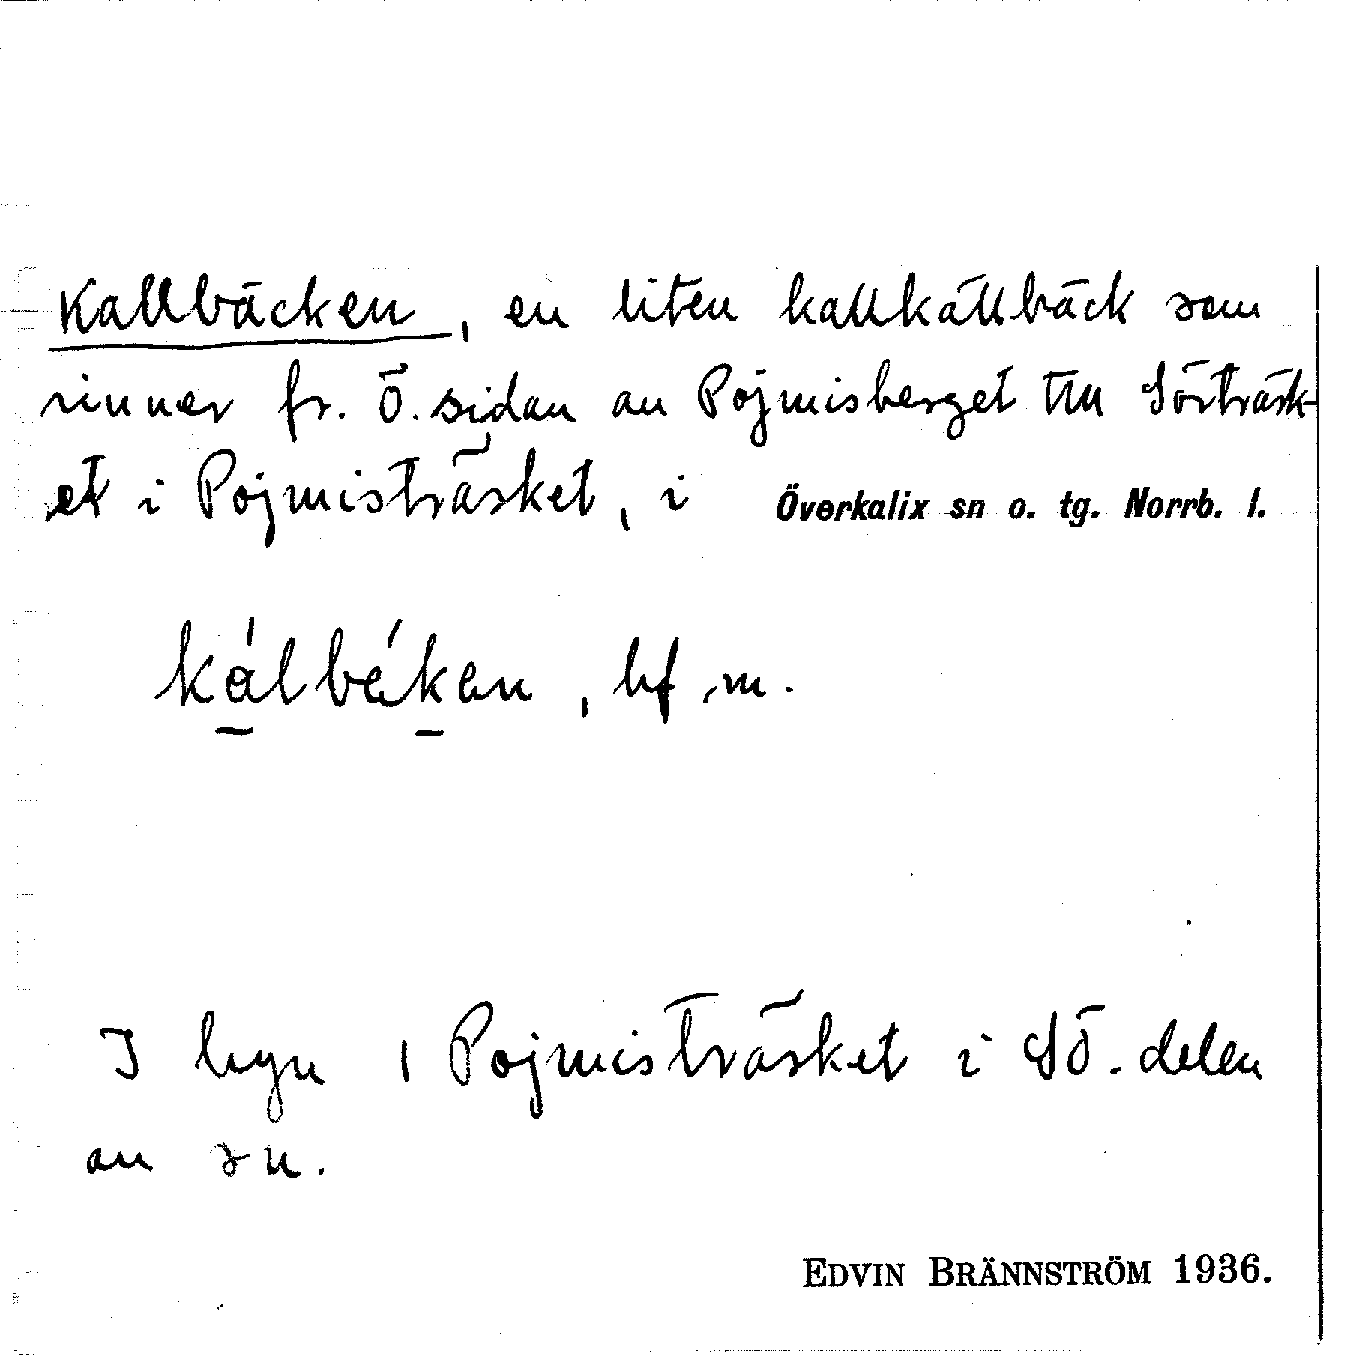 Kallbäcken, en liten kallkällbäck som
rinner fr. Ö. sidan av Pojmisberget till Sörträsk-
et i Pojmisträsket, i Överkalix sn o. tg. Norrb. l.
kálbákan, bf. m.
I byn i Pojmisträsket i SÖ. delen
av sn.
EDVIN BRÄNNSTRÖM 1936.